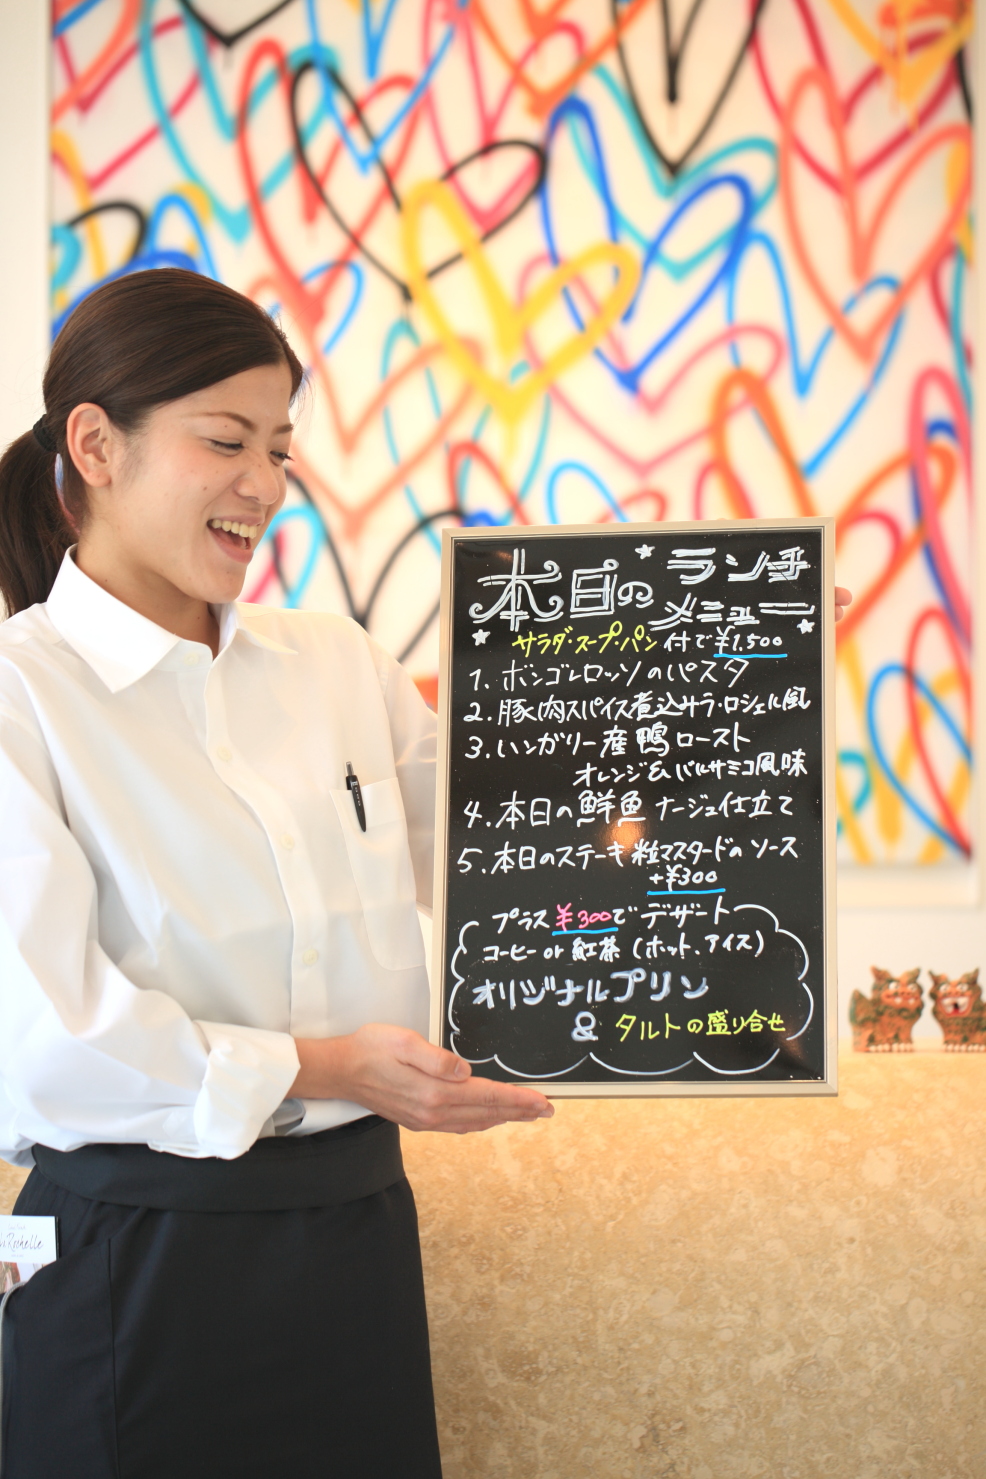 本日の ランチメニュー
サラダ・スープ・パン 付で ¥1,500
1. ボンゴレロッソのパスタ
2. 豚肉スパイス煮込みラ・ロシェル風
3. ハンガリー産鴨ロースト
オレンジ&バルサミコ風味
4. 本日の鮮魚 ナージュ仕立て
5. 本日のステーキ 粒マスタードのソース
+¥300
プラス ¥300で デザート
コーヒー or 紅茶 (ホット、アイス)
オリジナルプリン
& タルトの盛り合せ
Rochelle